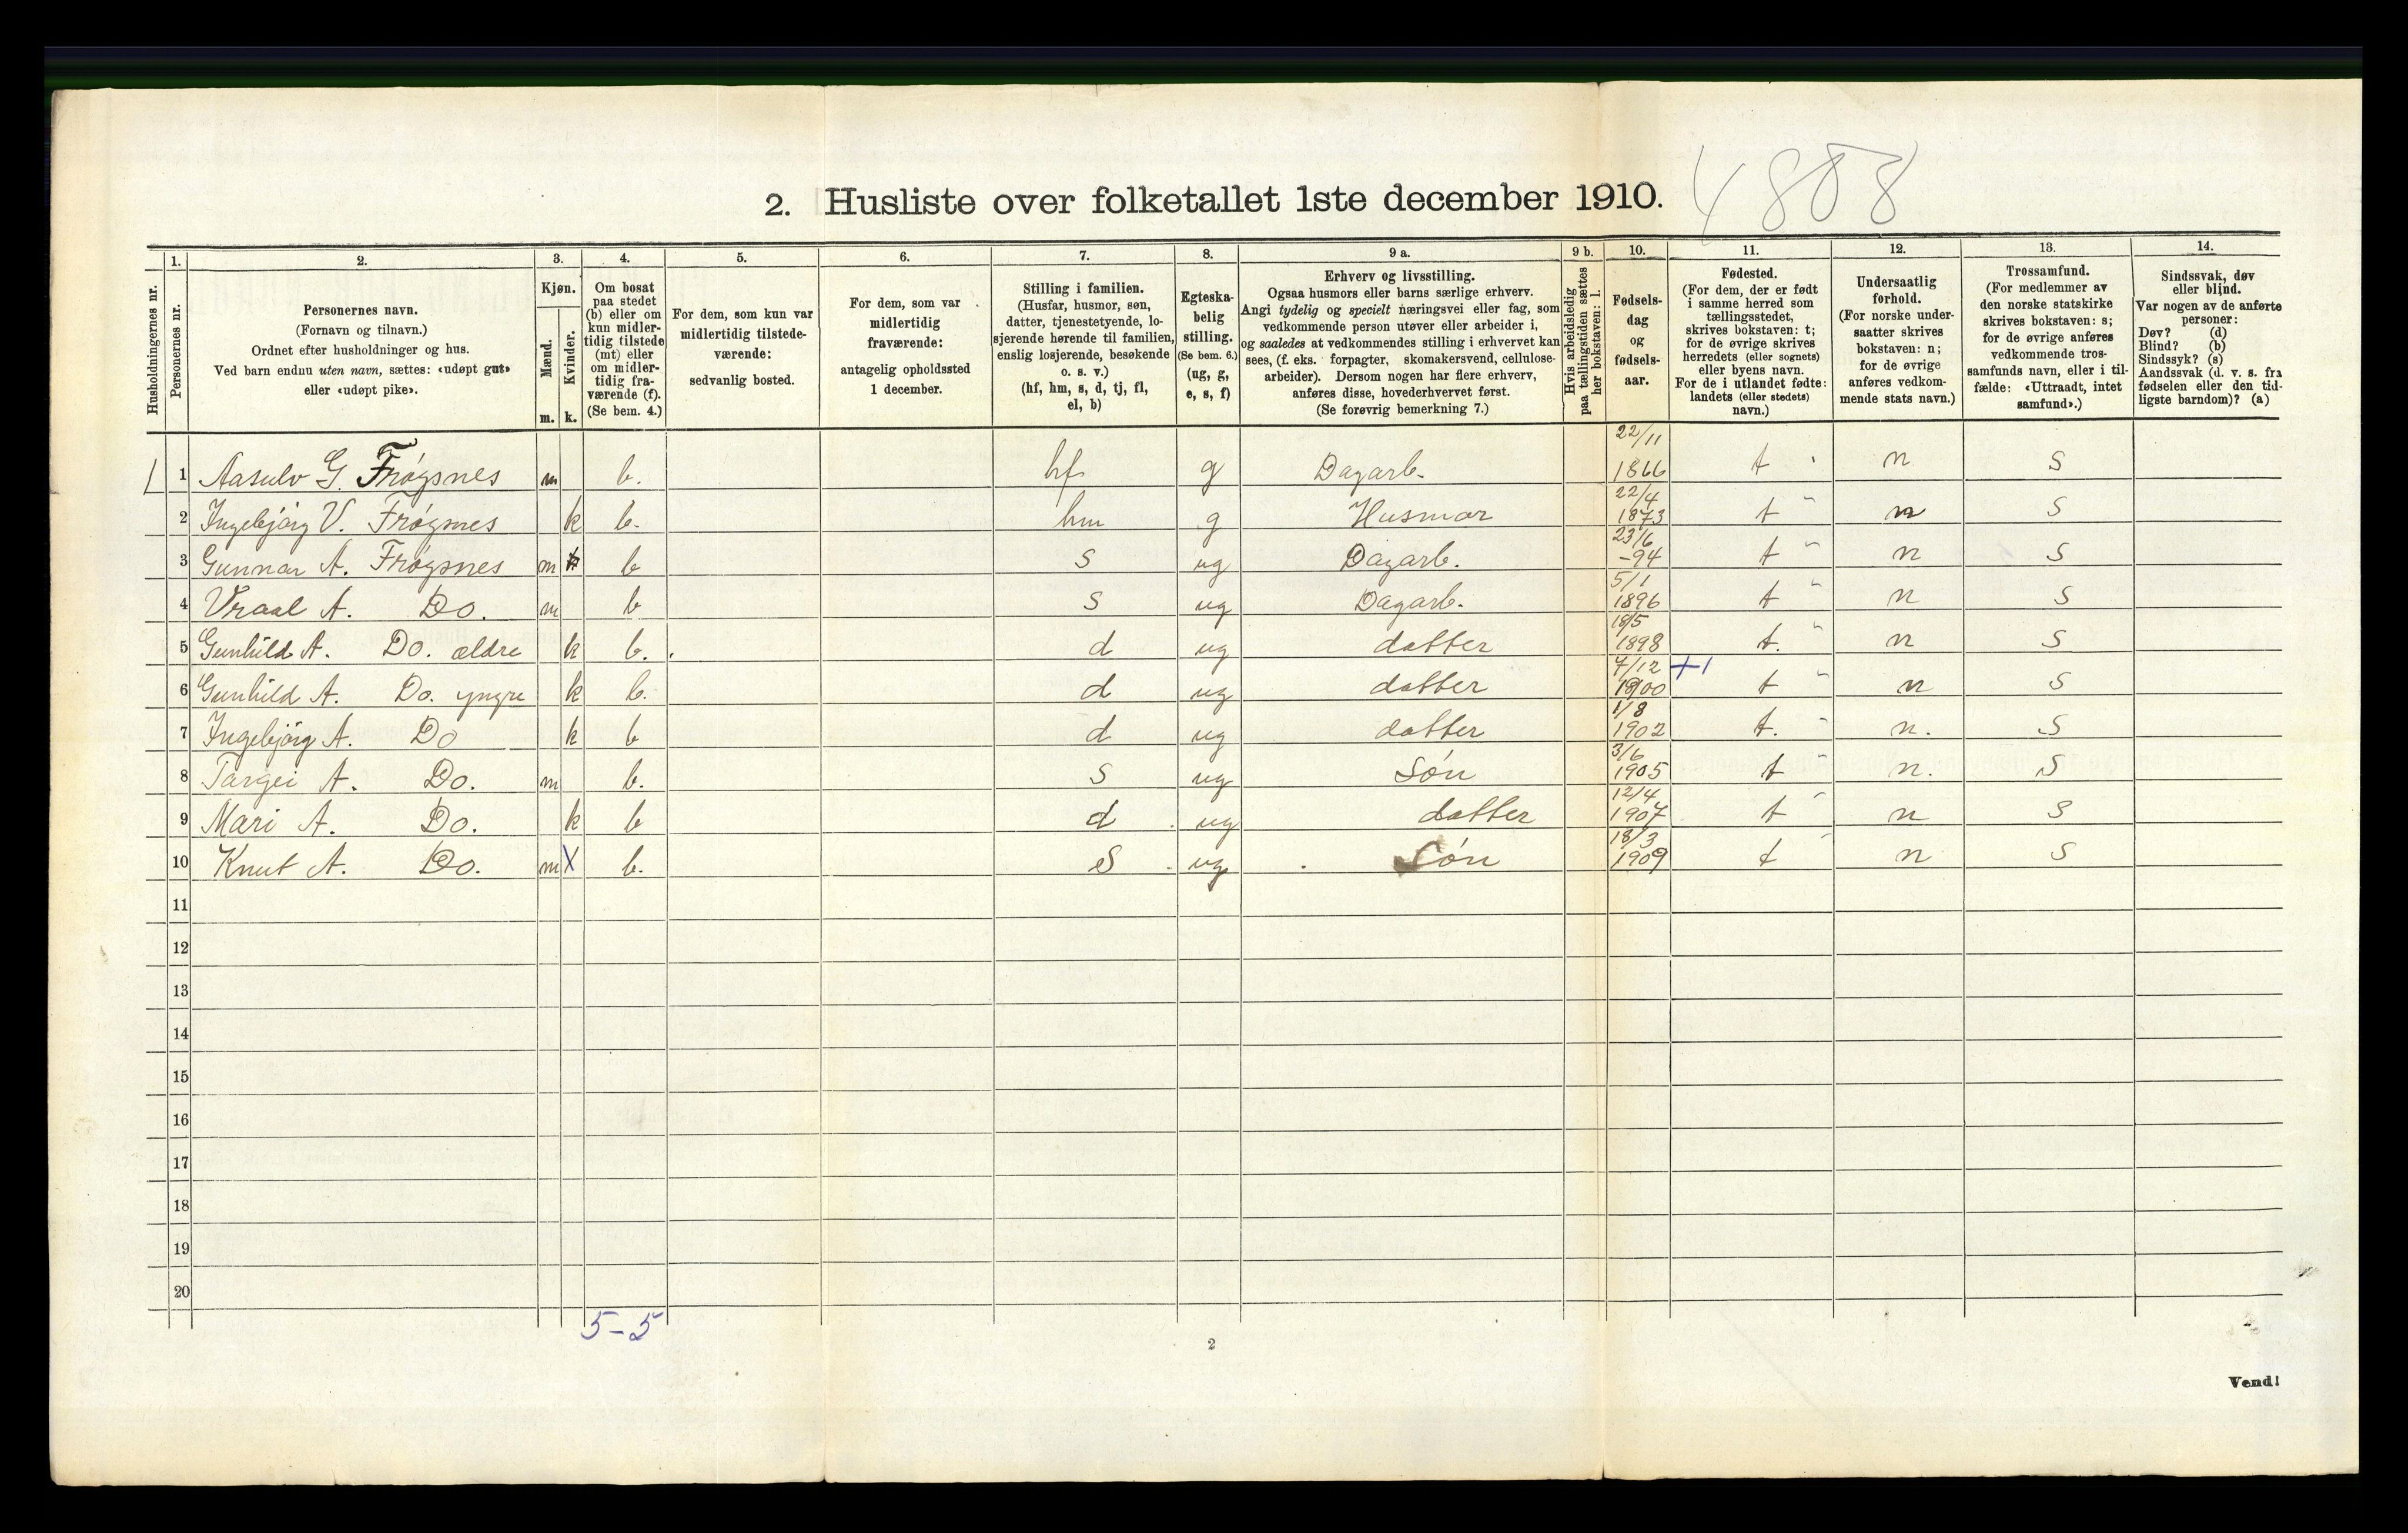 2. Husliste over folketallet 1ste december 1910. 4808
Husholdningernes nr.
1. Personernes nr.
2. Personernes navn.
(Fornavn og tilnavn.)
Ordnet efter husholdninger og hus.
Ved barn endnu uten navn, sættes: «udøpt gut»
eller «udøpt pike».
3. Kjøn.
Mænd. m.
Kvinder. k.
4. Om bosat
paa stedet
(b) eller om
kun midler-
tidig tilstede
(mt) eller
om midler-
tidig fra-
værende (f).
(Se bem. 4.)
5. For dem, som kun var
midlertidig tilstede-
værende:
sedvanlig bosted.
6. For dem, som var
midlertidig
fraværende:
antagelig opholdssted
1 december.
7. Stilling i familien.
(Husfar, husmor, søn,
datter, tjenestetyende, lo-
sjerende hørende til familien,
enslig losjerende, besøkende
o. s. v.)
(hf, hm, s, d, tj, fl,
el, b)
8. Egteska-
belig
stilling.
(Se bem. 6.)
(ug, g,
e, s, f)
9 a. Erhverv og livsstilling.
Ogsaa husmors eller barns særlige erhverv.
Angi tydelig og specielt næringsvei eller fag, som
vedkommende person utøver eller arbeider i,
og saaledes at vedkommendes stilling i erhvervet kan
sees, (f. eks. forpagter, skomakersvend, cellulose-
arbeider). Dersom nogen har flere erhverv,
anføres disse, hovederhvervet først.
(Se forøvrig bemerkning 7.)
9 b. Hvis arbeidsledig
paa tællingstiden sættes
her bokstaven: l.
10. Fødsels-
dag
og
fødsels-
aar.
11. Fødested.
(For dem, der er født
i samme herred som
tællingsstedet,
skrives bokstaven: t;
for de øvrige skrives
herredets (eller sognets)
eller byens navn.
For de i utlandet fødte:
landets (eller stedets)
navn.)
12. Undersaatlig
forhold.
(For norske under-
saatter skrives
bokstaven: n;
for de øvrige
anføres vedkom-
mende stats navn.)
13. Trossamfund.
(For medlemmer av
den norske statskirke
skrives bokstaven: s;
for de øvrige anføres
vedkommende tros-
samfunds navn, eller i til-
fælde: «Uttraadt, intet
samfund».)
14. Sindssvak, døv
eller blind.
Var nogen av de anførte
personer:
Døv? (d)
Blind? (b)
Sindssyk? (s)
Aandssvak (d. v. s. fra
fødselen eller den tid-
ligste barndom)? (a)
1 1 Aasulv G. Frøgsnes m b. hf g Dagarb. 22/11 1866 t n s
2 Ingebjörg V. Frøgsnes k b. hm g Husmor 22/4 1873 t n s
3 Gunnar A. Frøgsnes m k b s ug Dagarb. 23/6 -94 t n s
4 Vraal A. Do. m b s ug Dagarb. 5/1 1896 t n s
5 Gunhild A. Do. ældre k b. d ug datter 18/5 1898 t. n s
6 Gunhild A. Do. yngre k b. d ug datter 7/12 1900 +1 t n s
7 Ingebjörg A. Do k b d ug datter 1/8 1902 t. n. s
8 Targei A. Do. m b. s ug Søn 3/6 1905 t n. s
9 Mari A. Do. k b d ug datter 12/4 1907 t n s
10 Knut A. Do. m X b. s ug Søn 18/3 1909 t n s
11
12
13
14
15
16
17
18
19
20
5-5
2
Vend!